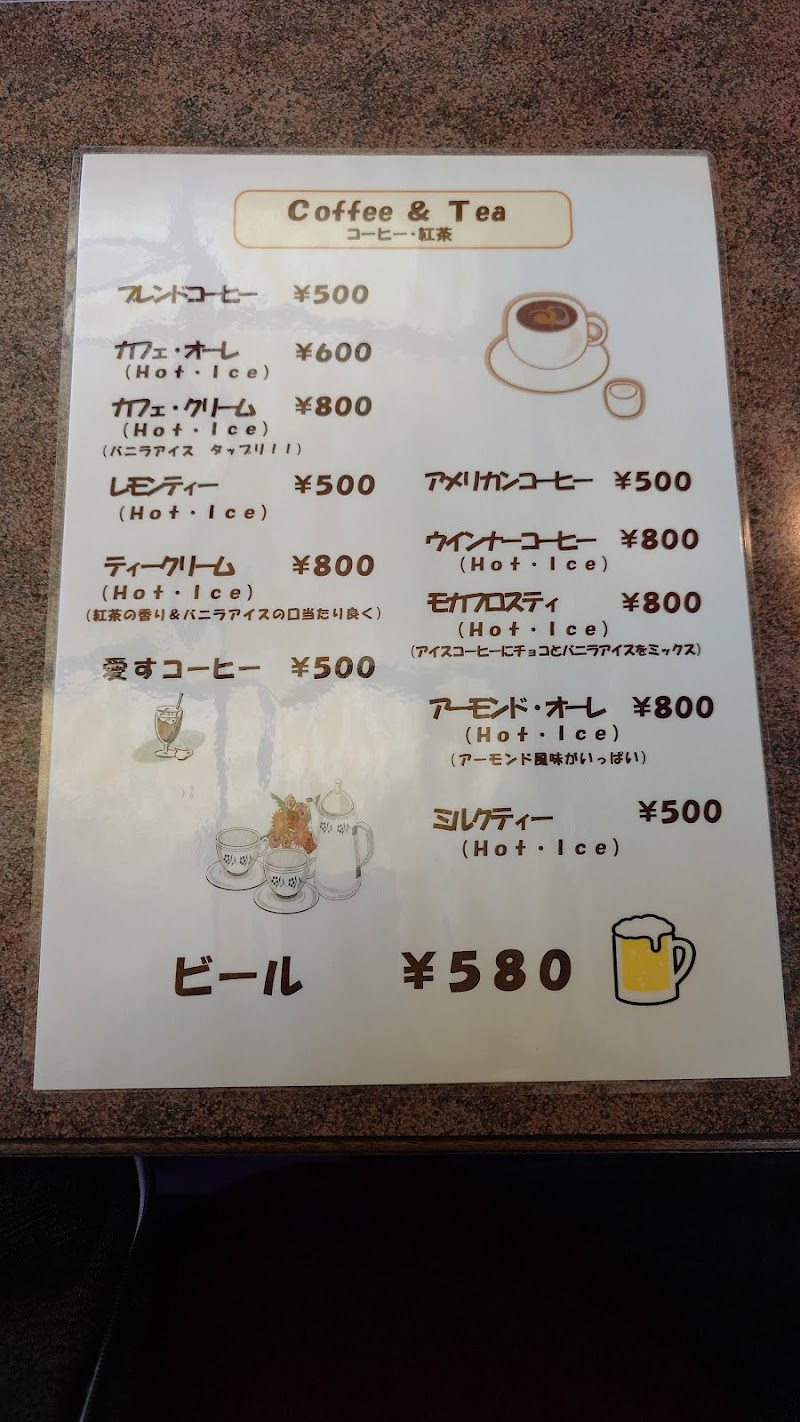 Coffee & Tea
コーヒー・紅茶
ブレンドコーヒー ¥500
カフェ・オーレ ¥600
(Hot・Ice)
カフェ・クリーム ¥800
(Hot・Ice)
(バニラアイス タップリ!!)
レモンティー ¥500
(Hot・Ice)
ティークリーム ¥800
(Hot・Ice)
(紅茶の香り&バニラアイスの口当たり良く)
愛すコーヒー ¥500
アメリカンコーヒー ¥500
ウインナーコーヒー ¥800
(Hot・Ice)
モカフロスティ ¥800
(Hot・Ice)
(アイスコーヒーにチョコとバニラアイスをミックス)
アーモンド・オーレ ¥800
(Hot・Ice)
(アーモンド風味がいっぱい)
ミルクティー ¥500
(Hot・Ice)
ビール ¥580